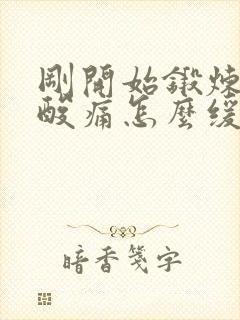 剛開始鍛煉
酸痛怎麼緩
暗香箋字